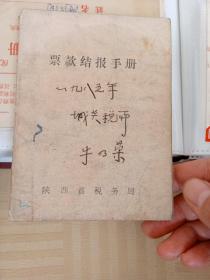 票款结报手册
一九八三年
城关税所
牛
陕西省税务局